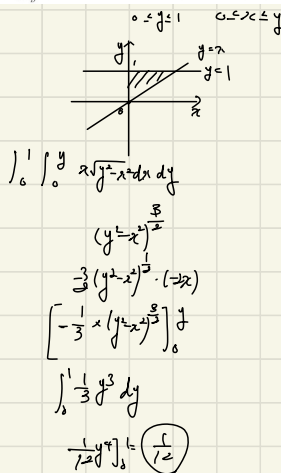 0 ≤ y ≤ 1    0 ≤ x ≤ y
y
1
y=x
y=1
0
x
∫₀¹ ∫₀^y x√(y²-x²) dx dy
(y²-x²)^(3/2)
3/2 (y²-x²)^(1/2) · (-2x)
[-1/3 × (y²-x²)^(3/2)]₀^y
∫₀¹ 1/3 y³ dy
1/12 y⁴]₀¹ = 1/12